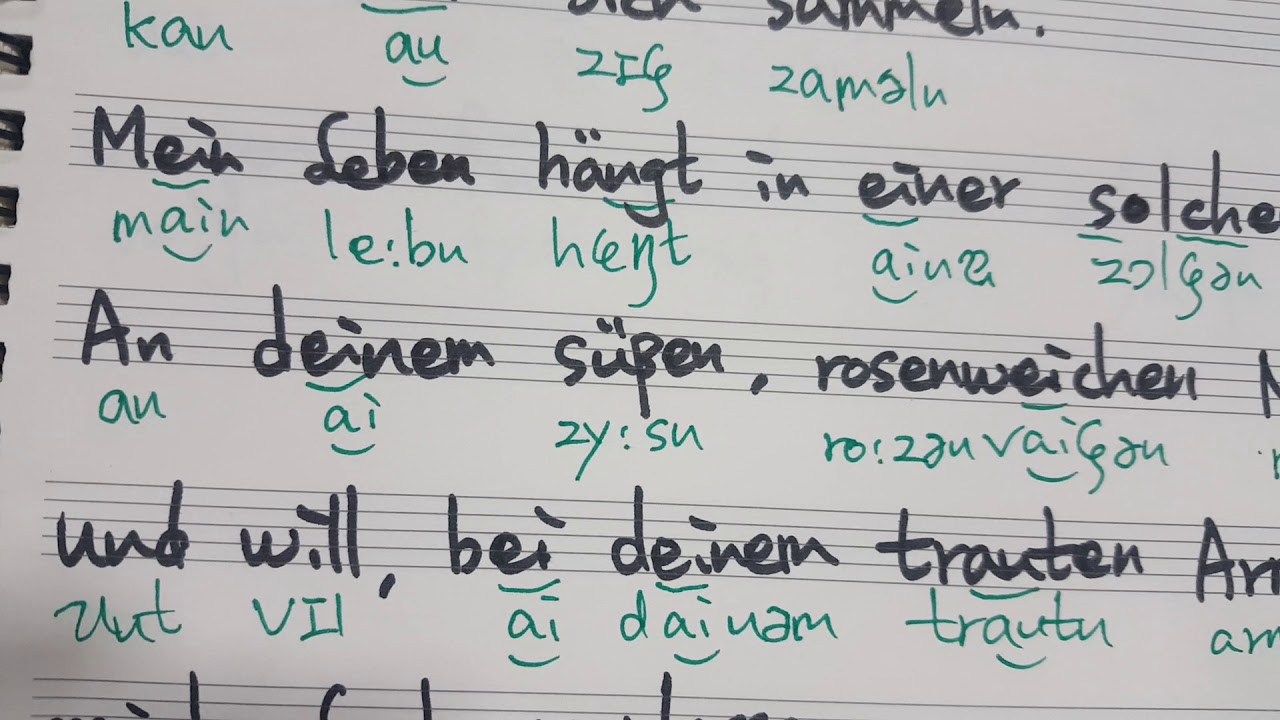 sammeln.
kan au zɪç zaməln
Mein Leben hängt in einer solche
main le:bn hɛŋt ainɐ zɔlçən
An deinem süßen, rosenweichen
an ai zy:sn ro:zənvaiçən
und will, bei deinem trauten Ar
ʊnt vɪl ai dainəm trautn arm